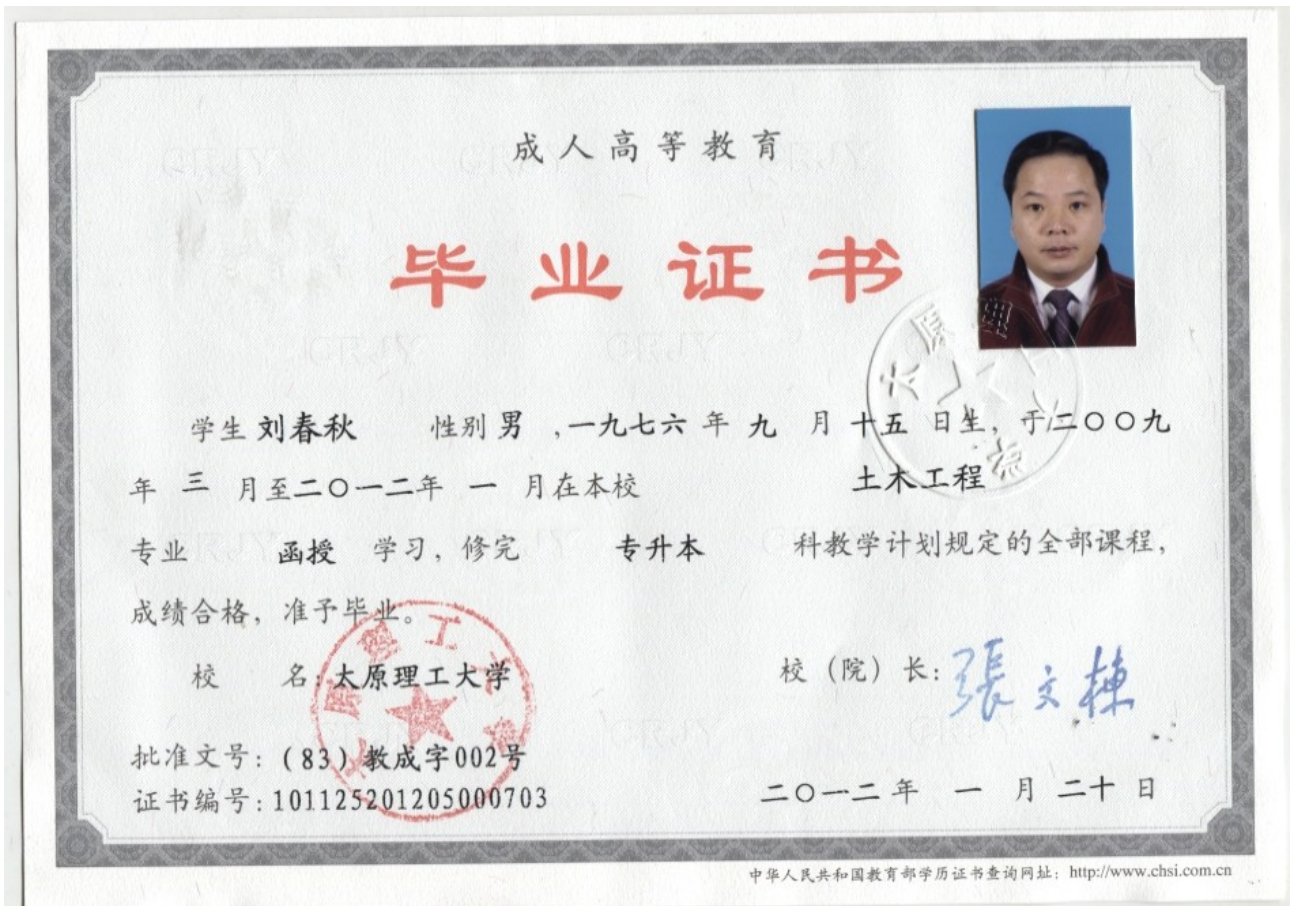 成人高等教育
毕业证书
学生 刘春秋 性别 男 ,一九七六 年 九 月 十五 日生, 于二〇〇九
年 三 月至二〇一二年 一 月在本校 土木工程
专业 函授 学习, 修完 专升本 科教学计划规定的全部课程,
成绩合格, 准予毕业。
校 名: 太原理工大学
校（院）长: 張文棟
批准文号: (83) 教成字002号
证书编号: 101125201205000703
二〇一二 年 一 月 二十 日
太原理工大学
中华人民共和国教育部学历证书查询网址: http://www.chsi.com.cn